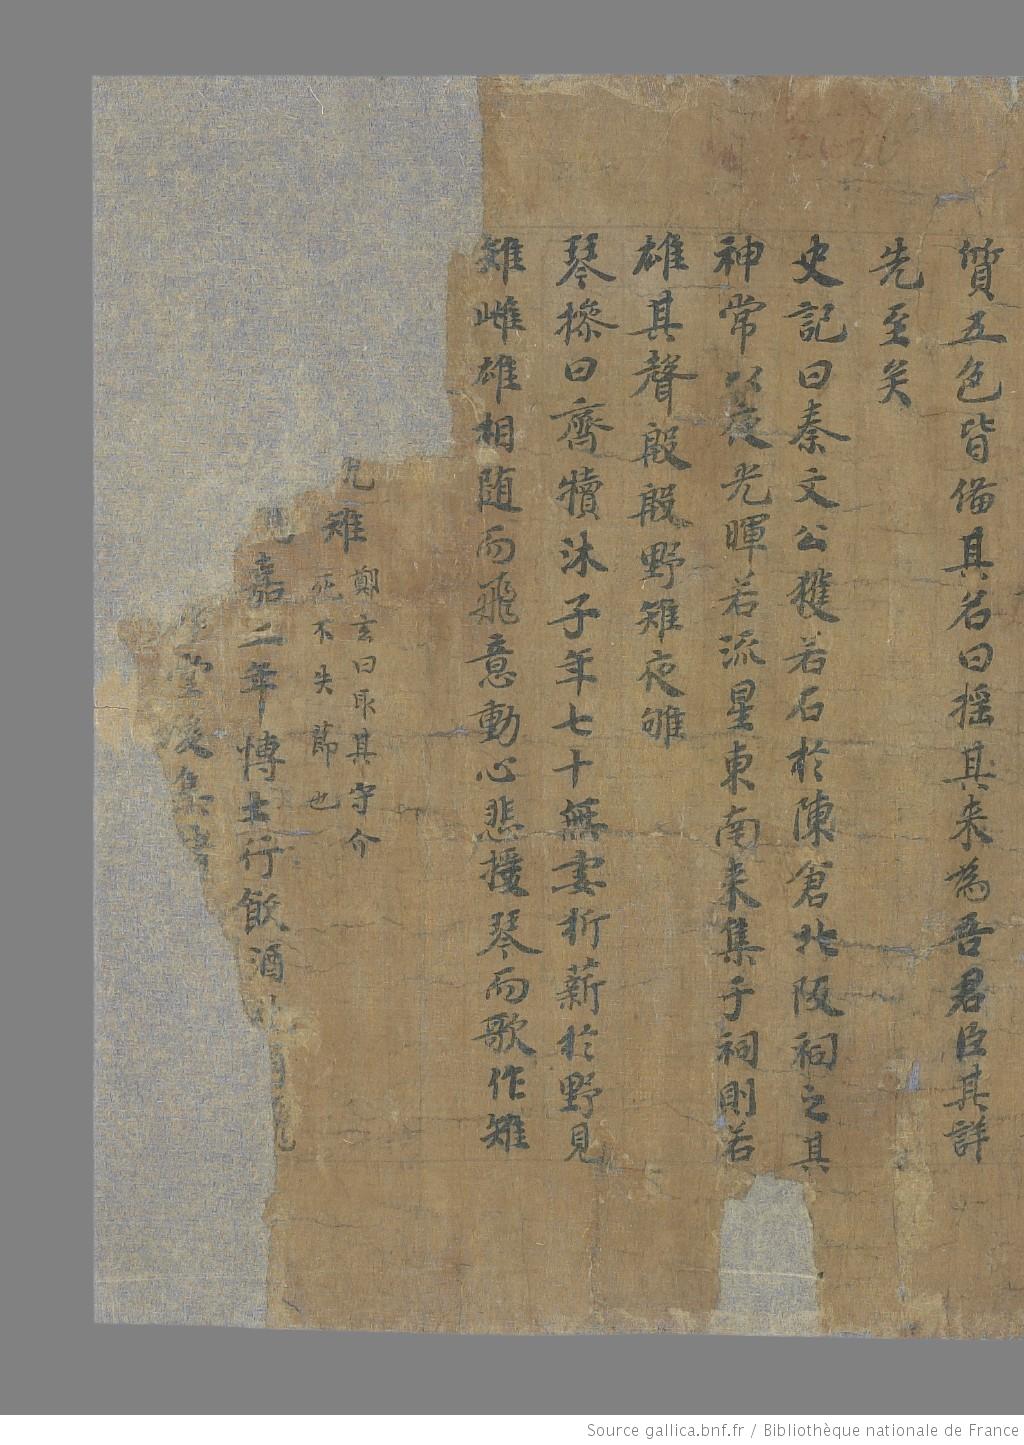 質五色皆備其名曰搖其来為吾君臣其詳
先至矣
史記曰秦文公獲若石於陳倉北阪祠之其
神常以夜光暉若流星東南来集于祠則若
雄其聲殷殷野雉夜雊
琴操曰齊犢沐子年七十無妻析薪於野見
雉雌雄相随而飛意動心悲援琴而歌作雉
雉
鄭玄曰取其守介
死不失節也
嘉二年博士行飲酒
堂後集
Source gallica.bnf.fr / Bibliothèque nationale de France